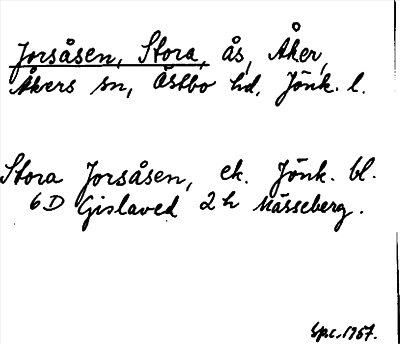 Jorsåsen, Stora, ås, Åker,
Åkers sn, Östbo hd, Jönk. l.
Stora Jorsåsen, ek. Jönk. bl.
6D Gislaved 2h Mässeberg.
Epc. 1957.